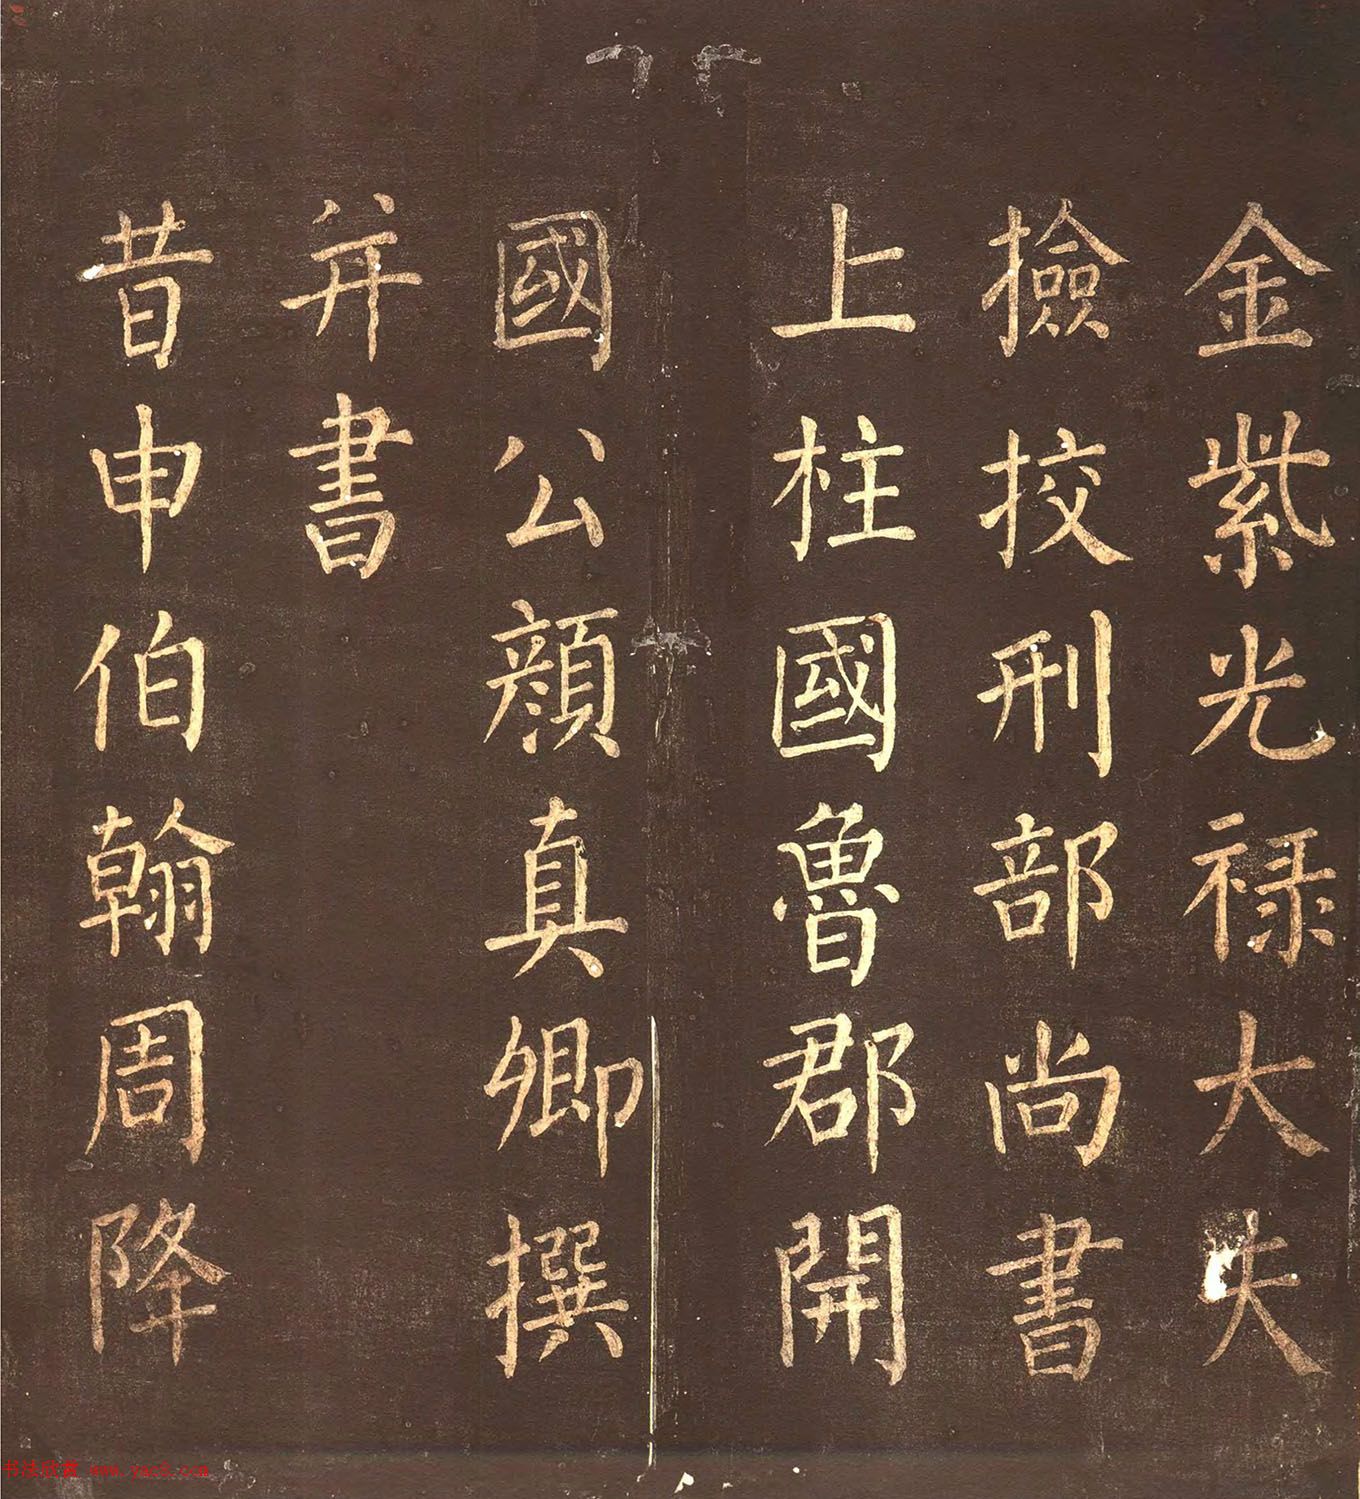 金紫光祿大夫
撿挍刑部尚書
上柱國魯郡開
國公顔真卿撰
并書
昔申伯翰周降
书法欣赏 www.yac8.com